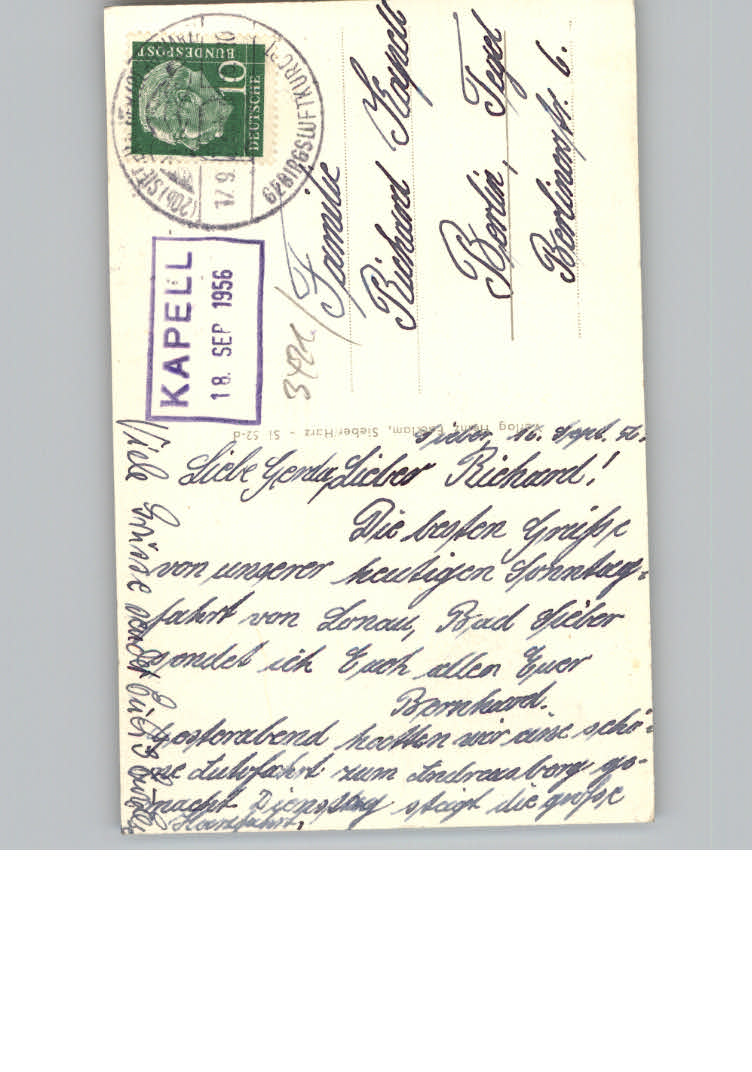 Sieber, 16. Sept. 56.
Liebe Gerda, Lieber Richard!
Die besten Grüsse
von unserer heutigen Sonntag=
fahrt von Lonau, Bad Sieber
sendet ich Euch allen Euer
Bernhard.
Gesterabend hatten wir eine schö=
ne Autofahrt zum Andreasberg ge-
macht Dienstag steigt die große
Harzfahrt.
Viele Grüsse sendet
Familie
Richard Kapell
Berlin, Tegel
Berlinerstr. 6.
KAPELL
18. SEP 1956
DEUTSCHE
BUNDESPOST
10
(20b) SIEBER
17.9.
GEBIRGSLUFTKURORT
Verlag Heinz, Sieber/Harz - Si 52-d